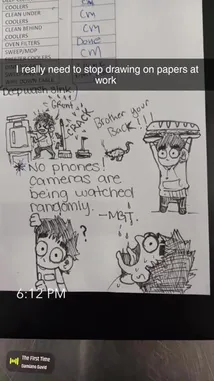 COOLERS
CLEAN UNDER CM
COOLERS
CLEAN BEHIND CM
COOLERS
OVEN FILTERS Done
SWEEP/MOP CM
I really need to stop drawing on papers at
work
Grant
CRACK
Brother your
Back!!!
*No phones!
cameras are
being watched
randomly.
-MGT.
?
6:12 PM
The First Time
Damiano David